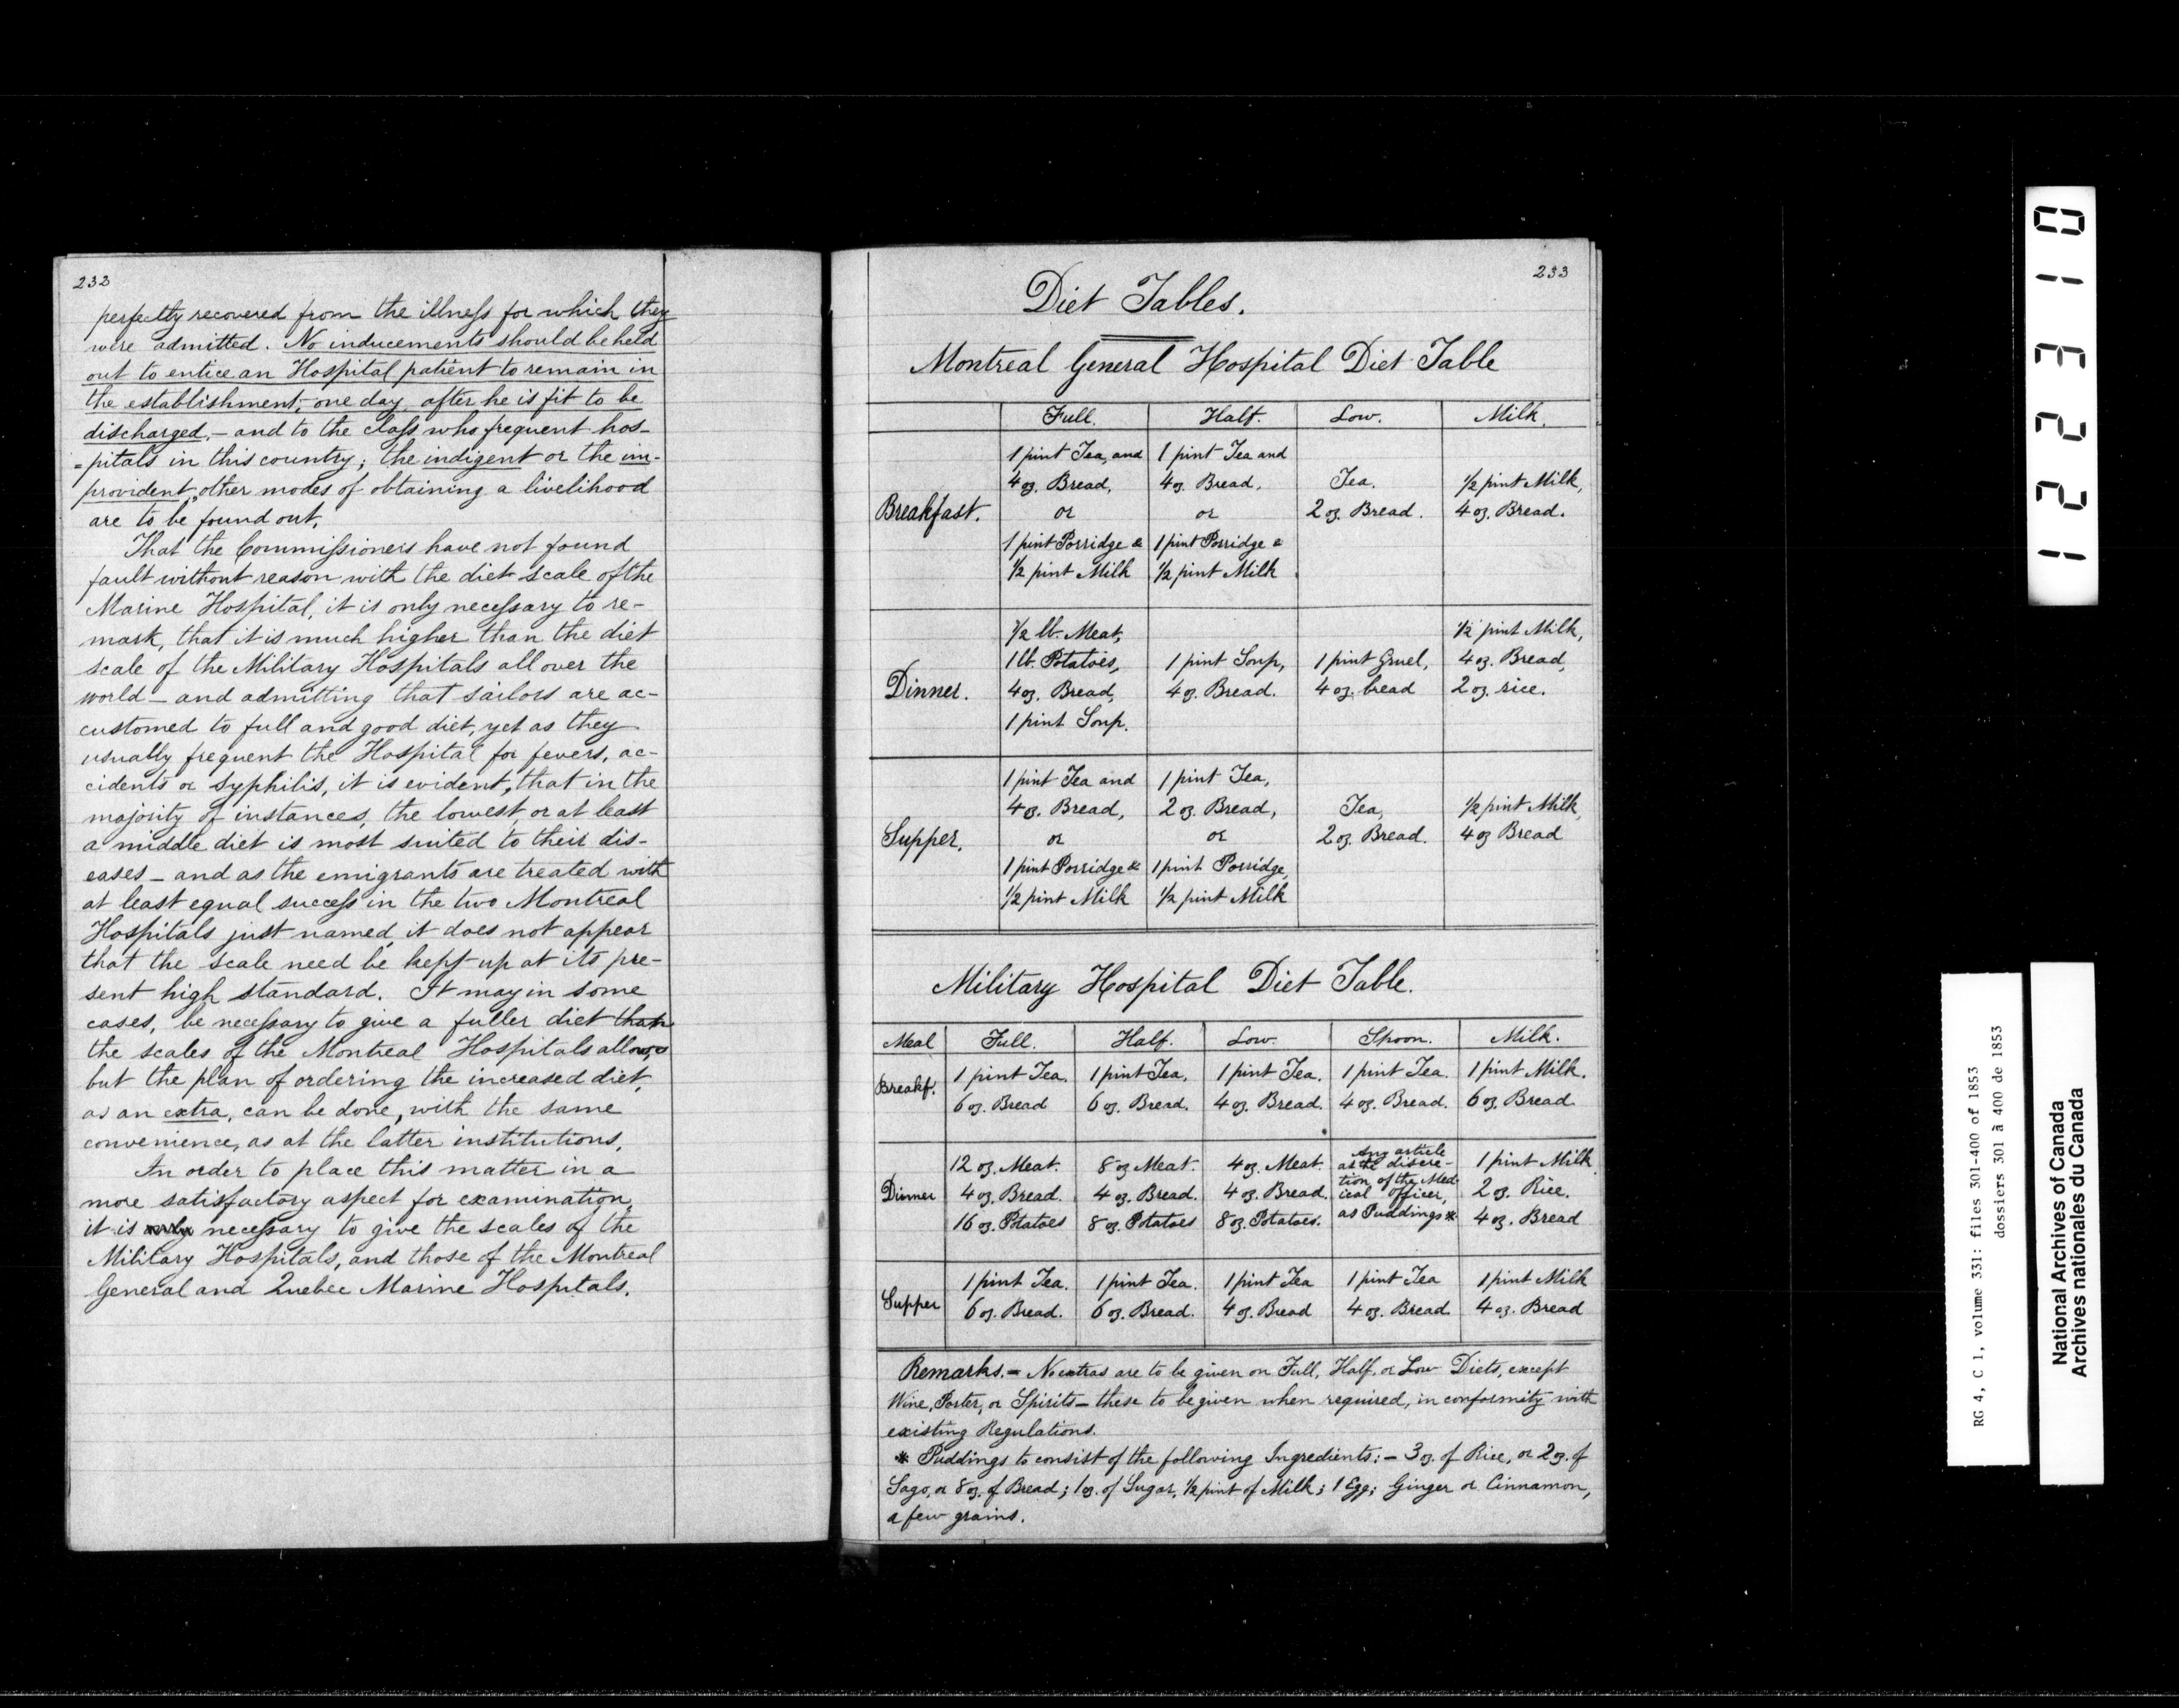 232
perfectly recovered from the illness for which they
were admitted. No inducements should be held
out to entice an Hospital patient to remain in
the establishment, one day, after he is fit to be
discharged, – and to the class who frequent hos-
=pitals in this country; the indigent or the im-
provident, other modes of obtaining a livelihood
are to be found out.
That the Commissioners have not found
fault without reason with the diet scale of the
Marine Hospital, it is only necessary to re-
mark, that it is much higher than the diet
scale of the Military Hospitals all over the
world – and admitting that sailors are ac-
customed to full and good diet, yet as they
usually frequent the Hospital for fevers, ac-
cidents or Syphilis, it is evident, that in the
majority of instances, the lowest, or at least
a middle diet is most suited to their dis-
eases – and as the emigrants are treated with
at least equal success in the two Montreal
Hospitals just named, it does not appear
that the scale need be kept up at its pre-
sent high standard. It may in some
cases, be necessary to give a fuller diet than
the scales of the Montreal Hospitals allows,
but the plan of ordering the increased diet,
as an extra, can be done, with the same
convenience, as at the latter institutions.
In order to place this matter in a
more satisfactory aspect for examination,
it is only necessary to give the scales of the
Military Hospitals, and those of the Montreal
General and Quebec Marine Hospitals.
233
Diet Tables.
Montreal General Hospital Diet Table
Full. Half. Low. Milk.
1 pint Tea, and 1 pint Tea and
4 oz. Bread, 4 oz. Bread, Tea. 1/2 pint Milk,
Breakfast. or or 2 oz. Bread. 4 oz. Bread.
1 pint Porridge & 1 pint Porridge &
1/2 pint Milk 1/2 pint Milk
1/2 lb. Meat, 1/2 pint Milk,
1 lb. Potatoes, 1 pint Soup, 1 pint Gruel, 4 oz. Bread,
Dinner. 4 oz. Bread, 4 oz. Bread. 4 oz. bread 2 oz. rice.
1 pint Soup.
1 pint Tea and 1 pint Tea,
4 oz. Bread, 2 oz. Bread, Tea, 1/2 pint Milk,
Supper. or or 2 oz. Bread. 4 oz Bread
1 pint Porridge & 1 pint Porridge,
1/2 pint Milk 1/2 pint Milk
Military Hospital Diet Table.
Meal Full. Half. Low. Spoon. Milk.
Breakf. 1 pint Tea. 1 pint Tea. 1 pint Tea. 1 pint Tea. 1 pint Milk.
6 oz. Bread 6 oz. Bread. 4 oz. Bread. 4 oz. Bread. 6 oz. Bread
12 oz. Meat. 8 oz Meat. 4 oz. Meat. Any article at the discre- 1 pint Milk
Dinner 4 oz. Bread. 4 oz. Bread. 4 oz. Bread. tion of the Med- ical Officer, 2 oz. Rice.
16 oz. Potatoes 8 oz. Potatoes 8 oz. Potatoes. as Puddings * 4 oz. Bread
1 pint Tea. 1 pint Tea. 1 pint Tea 1 pint Tea 1 pint Milk
Supper 6 oz. Bread. 6 oz. Bread. 4 oz. Bread 4 oz. Bread 4 oz. Bread
Remarks. – No extras are to be given on Full, Half, or Low Diets, except
Wine, Porter, or Spirits – these to be given when required, in conformity with
existing Regulations.
* Puddings to consist of the following Ingredients: – 3 oz. of Rice, or 2 oz. of
Sago, or 8 oz. of Bread; 1 oz. of Sugar, 1/2 pint of Milk; 1 Egg; Ginger or Cinnamon,
a few grains.
122310
RG 4, C 1, volume 331: files 301-400 of 1853
dossiers 301 à 400 de 1853
National Archives of Canada
Archives nationales du Canada